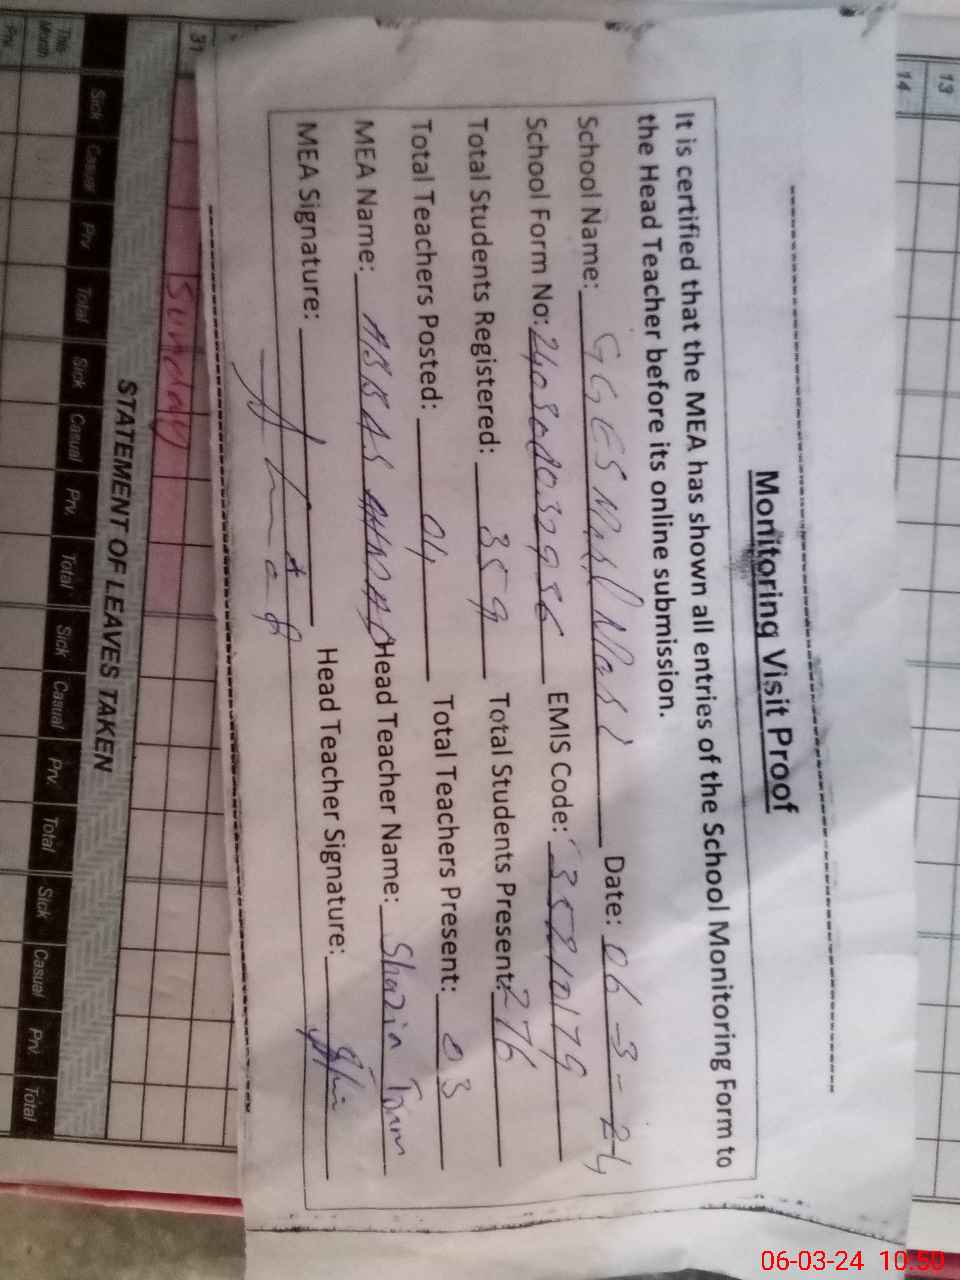 Monitoring Visit Proof
It is certified that the MEA has shown all entries of the School Monitoring Form to
the Head Teacher before its online submission.
School Name: GGES Date: 06-3-24
School Form No: EMIS Code:
Total Students Registered: 359 Total Students Present: 276
Total Teachers Posted: 04 Total Teachers Present: 03
MEA Name: ABBAS AHMAD Head Teacher Name: Shazia
MEA Signature: Head Teacher Signature:
13
14
31
Sunday
STATEMENT OF LEAVES TAKEN
Sick Casual Prv Total Sick Casual Prv. Total Sick Casual Prv. Total Sick Casual Prv. Total
This Month
Prv.
06-03-24 10:50